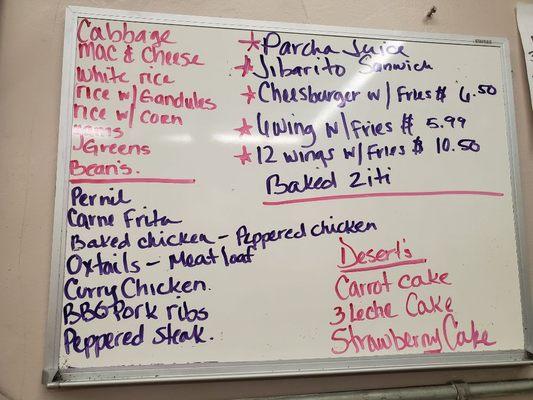 Cabbage
Mac & Cheese
White rice
rice w/ Gandules
rice w/ Corn
yams
Greens
Bean's.
Pernil
Carne Frita
Baked chicken - Peppered chicken
Oxtails - Meatloaf
Curry Chicken.
BBQ Pork ribs
Peppered Steak.
★ Parcha Juice
★ Jibarito Sanwich
★ Cheesburger w/ Fries $ 6.50
★ 6wing w/ Fries $ 5.99
★ 12 wings w/ Fries $ 10.50
Baked Ziti
Desert's
Carrot cake
3 Leche Cake
Strawberry Cake